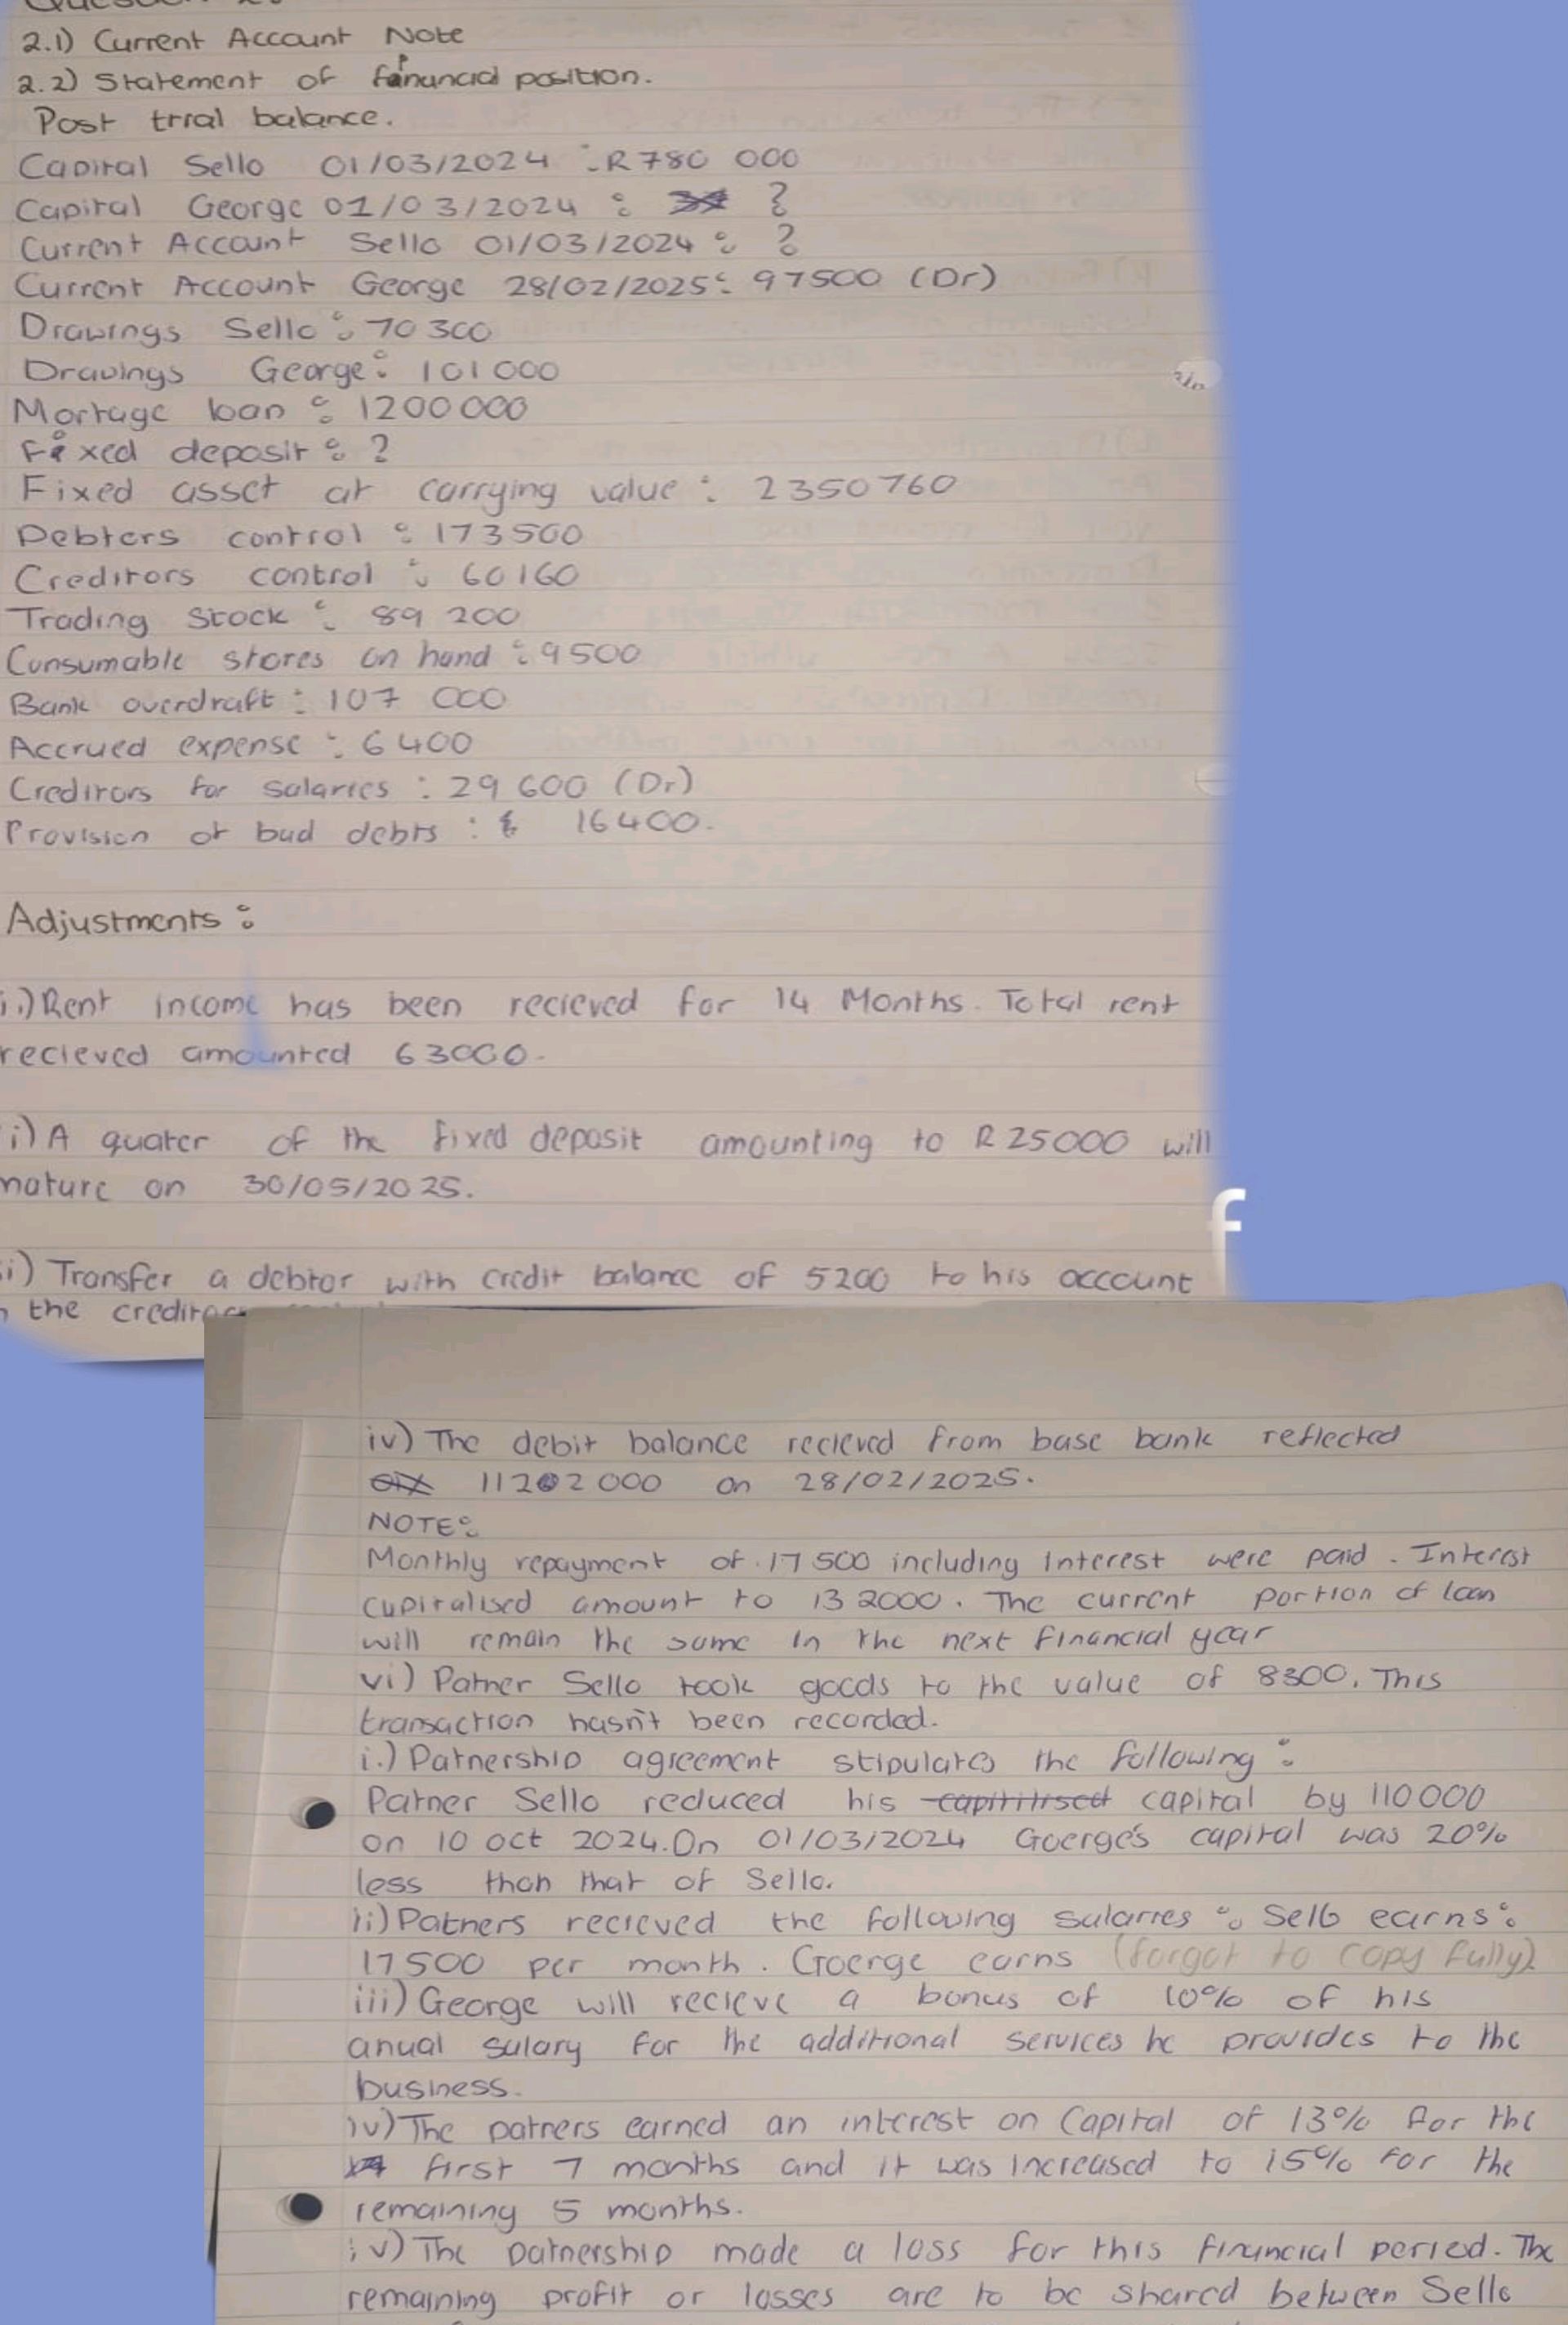 2.1) Current Account Note
2.2) Statement of financial position.
Post trial balance.
Capital Sello 01/03/2024 : R780 000
Capital George 01/03/2024 : ?
Current Account Sello 01/03/2024 : ?
Current Account George 28/02/2025: 97500 (Dr)
Drawings Sello : 70 300
Drawings George : 101 000
Mortage loan : 1200 000
Fixed deposit : ?
Fixed asset at carrying value : 2350760
Debters control : 173500
Creditors control : 60160
Trading Stock : 89 200
Consumable stores on hand : 9500
Bank overdraft : 107 000
Accrued expense : 6400
Creditors for salaries : 29 600 (Dr)
Provision of bad debts : 16400.
Adjustments :
i.) Rent income has been recieved for 14 Months. Total rent
recieved amounted 63000.
i) A quater of the fixed deposit amounting to R25000 will
mature on 30/05/2025.
i) Transfer a debtor with credit balance of 5200 to his account
the
f
iv) The debit balance recieved from base bank reflected
11202000 on 28/02/2025.
NOTE:
Monthly repayment of 17 500 including Interest were paid. Interest
capitalised amount to 13 2000. The current portion of loan
will remain the same in the next financial year
vi) Patner Sello took goods to the value of 8300. This
transaction hasn't been recorded.
i.) Patnership agreement stipulates the following :
Patner Sello reduced his capital by 110000
on 10 oct 2024. On 01/03/2024 Goerge's capital was 20%
less than that of Sello.
ii) Patners recieved the following salarries : Sello earns :
17500 per month. Goerge earns (forgot to copy fully)
iii) George will recieve a bonus of 10% of his
anual salary for the additional services he provides to the
business.
iv) The patners earned an interest on Capital of 13% for the
first 7 months and it was increased to 15% for the
remaining 5 months.
v) The patnership made a loss for this financial period. The
remaining profit or losses are to be shared between Sello